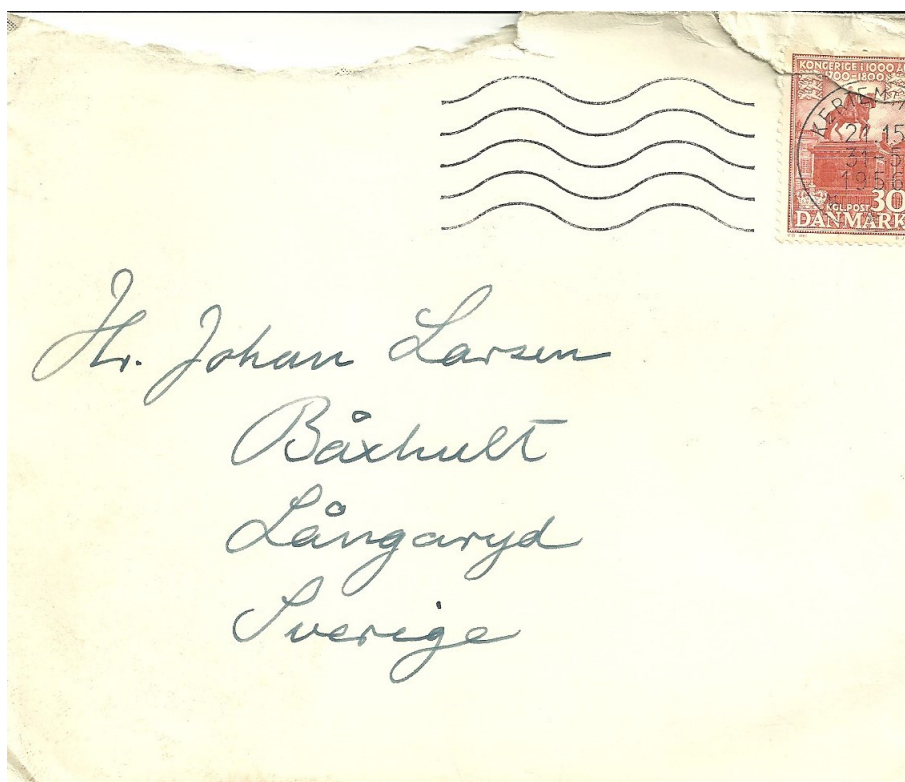 KONGERIGE I 1000 Å
1700-1800
KERTEM
21.15
31-5
1956
KGL. POST 30
DANMARK
Hr. Johan Larsen
Båxhult
Långaryd
Sverige